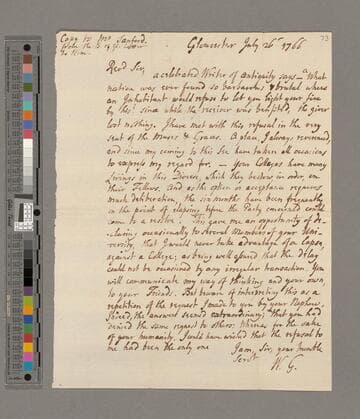 Copy to Mr Sanford.
73
Gloucester July 26th 1766
Revd Sir,
a celebrated Writer of antiquity says — What
nation was ever found so barbarous & brutal where
an Inhabitant would refuse to let you light your fire
by his? since while the receiver was benefited, the giver
lost nothing. I have met with this refusal in the very
seat of the Muses & Graces. A place I always reverenced,
and since my coming to this See have taken all occasions
to express my regard for. — Your Colleges have many
Livings in this Diocese, which they bestow in order, on
their Fellows. And as the option or acceptance requires
much deliberation, the six months have been frequently
on the point of elapsing before the Party concerned could
come to a resolve. This gave me an opportunity of de-
claring occasionally to several Members of your Uni-
versity, that I would never take advantage of a Lapse,
against a College; as being well assured that the Delay
could not be occasioned by any irregular transaction. You
will communicate my way of thinking and your own,
to your Friends. But beware of interpreting this as a
repetition of the request I made to you by your Nephew
Indeed, the answer seemed extraordinary; that you had
denied the same request to others. Whereas for the sake
of your humanity, I could have wished that the refusal to
me had been the only one
I am, Sir, your humble
Servt
W. G.